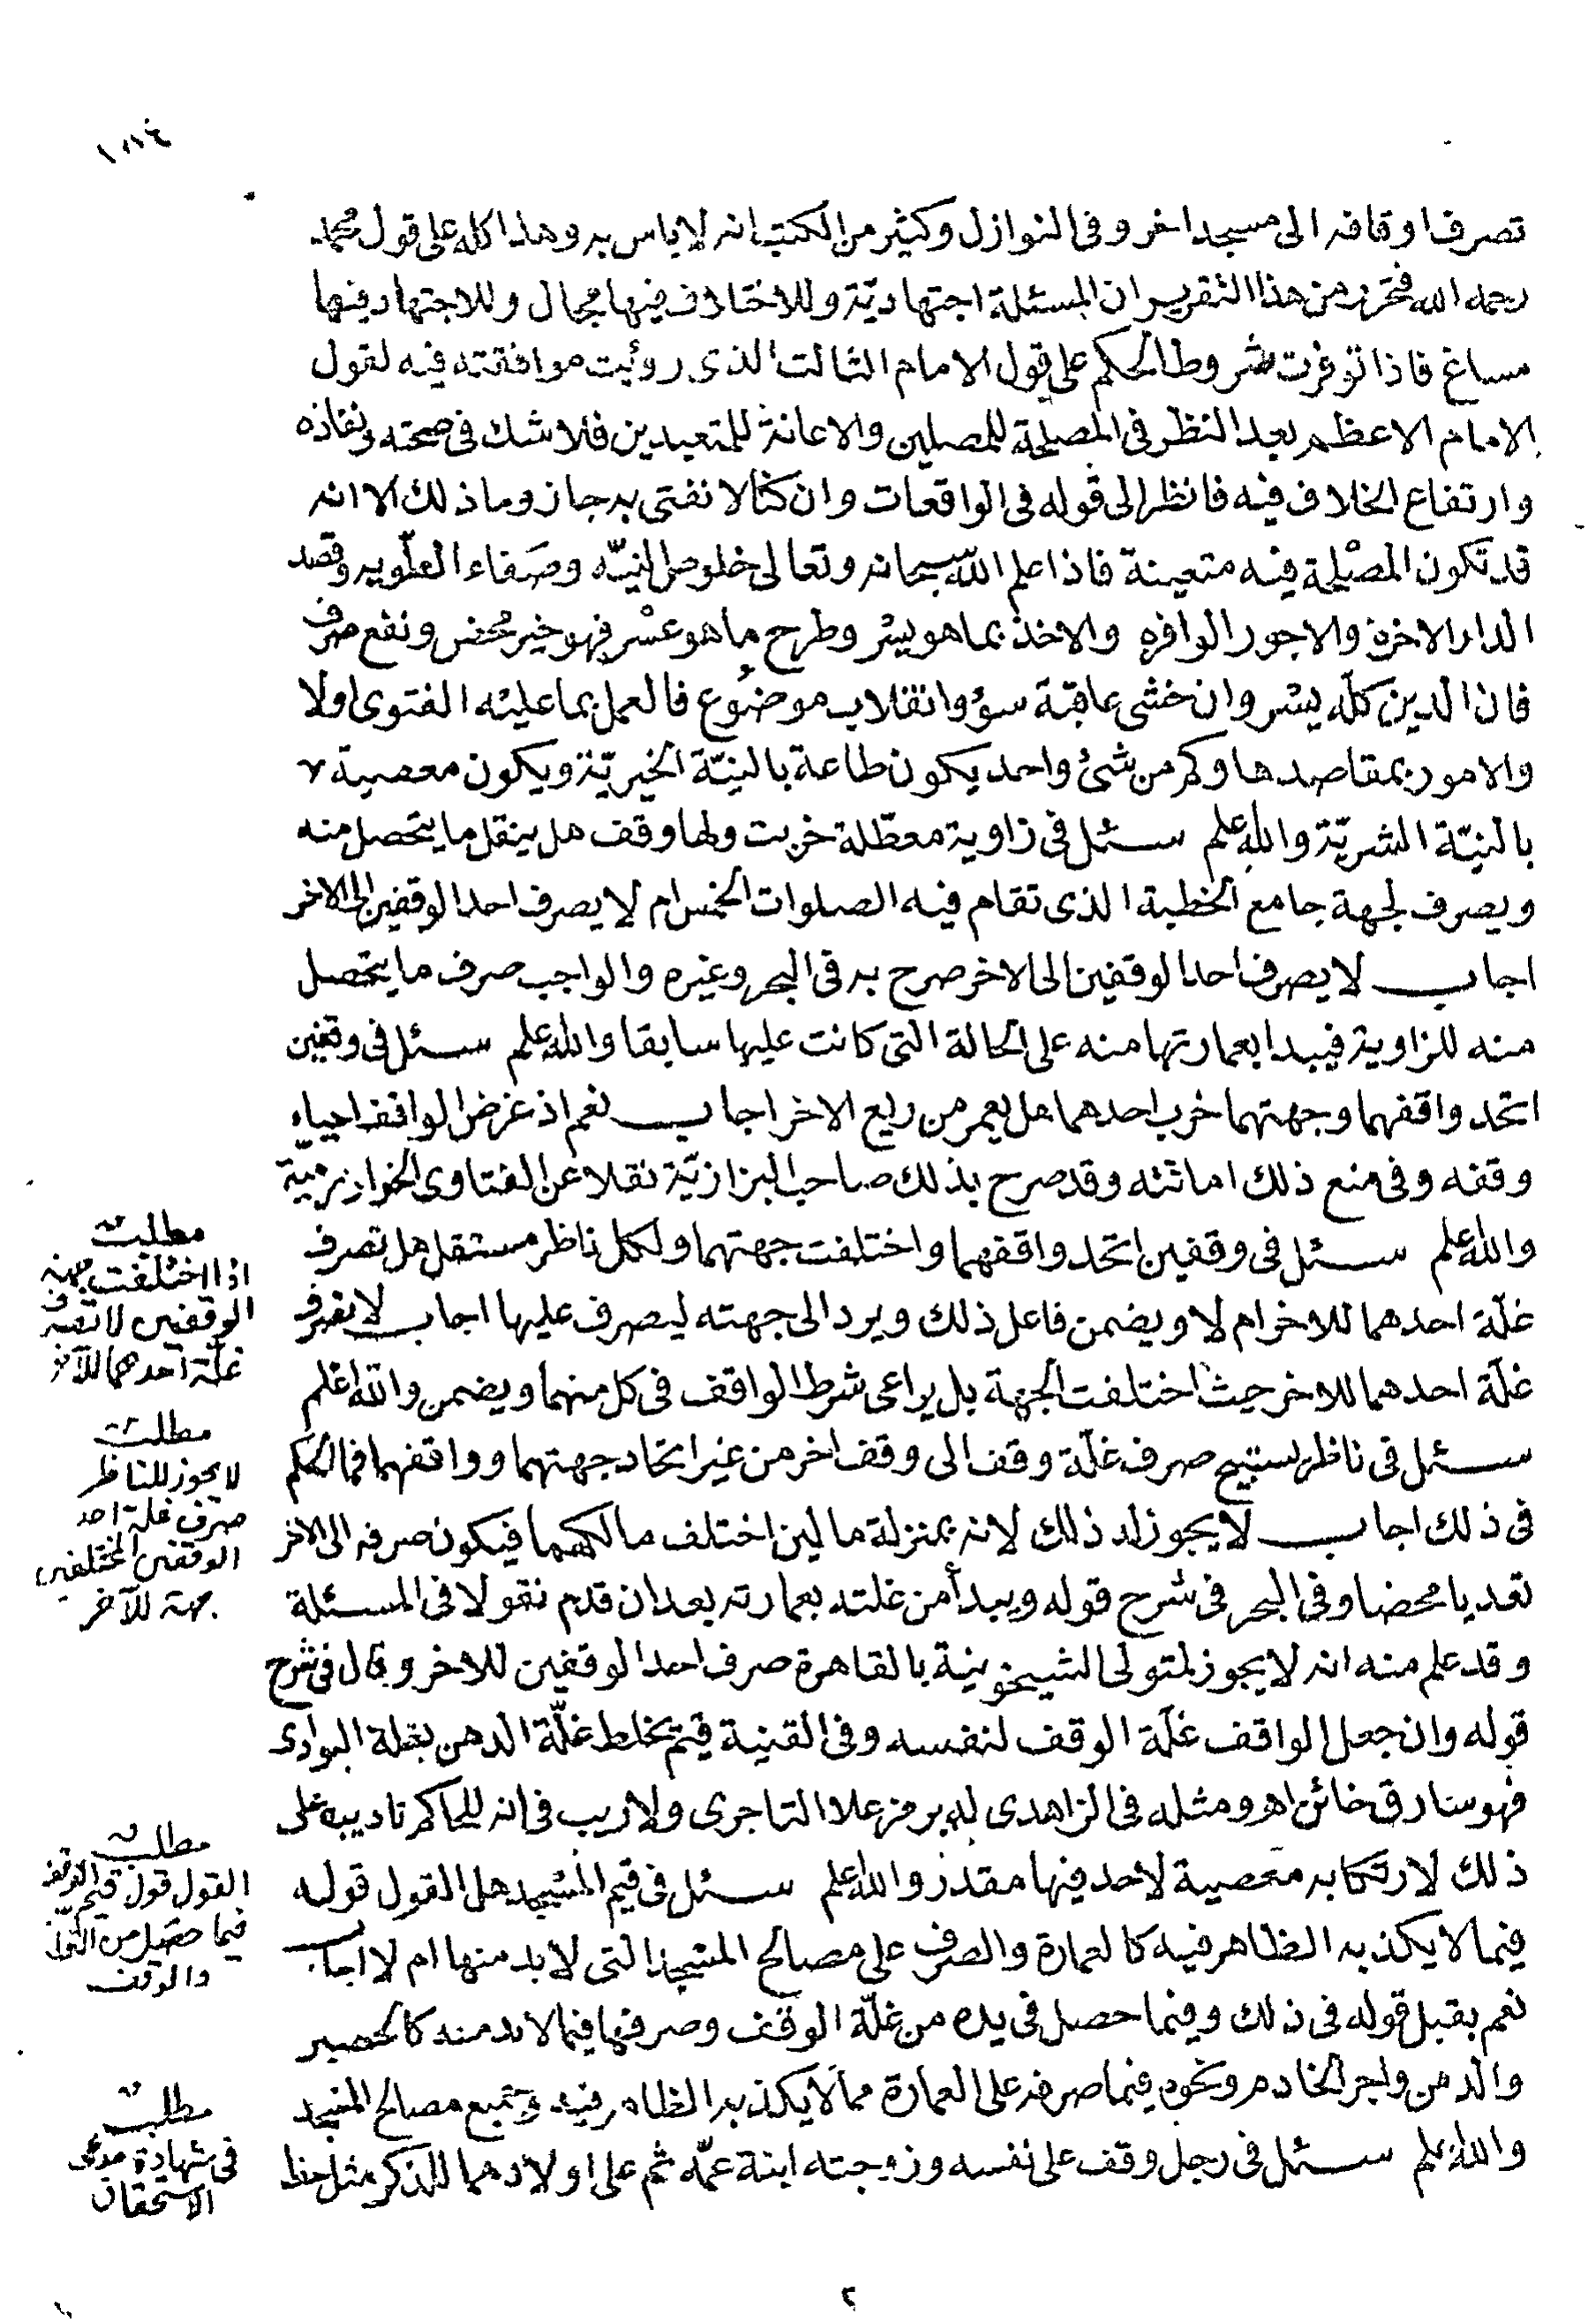 تصرف اوقافه الى مسجد اخر وفى النوازل وكثير من الكتب انه لا باس به وهذا كله على قول محمد
رحمه الله فتحرر من هذا التقرير ان المسئلة اجتهاديّة وللاختلاف فيها مجال وللاجتهاد فيها
مساغ فاذا توفرت شروط الحكم على قول الامام الثالث الذى روئيت موافقته فيه لقول
الامام الاعظم بعد النظر فى المصلحة للمصلين والاعانة للمتعبدين فلا شك فى صحته ونفاذه
وارتفاع الخلاف فيه فانظر الى قوله فى الواقعات وان كنا لا نفتى به جاز وما ذلك الا انه
قد تكون المصلحة فيه متعينة فاذا علم الله سبحانه وتعالى خلوص النيّه وصفاء الطويه وقصد
الدار الاخرة والاجور الوافره والاخذ بما هو يسر وطرح ما هو عسْر فهو خير محض ونفع صرف
فان الدين كلّه يسر وان خشى عاقبة سؤ وانقلاب موضوع فالعمل بما عليه الفتوى اولا
والامور بمقاصدها وكم من شئ واحد يكون طاعة بالنيّة الخيريّة ويكون معصية
بالنيّة الشريّة والله اعلم سئل فى زاوية معطّلة خربت ولها وقف هل ينقل ما يتحصل منه
ويصرف لجهة جامع الخطبة الذى تقام فيه الصلوات الخمس ام لا يصرف احد الوقفين الى الاخر
اجاب لا يصرف احد الوقفين الى الاخر صرح به فى البحر وغيره والواجب صرف ما يتحصل
منه للزاوية فيبدا بعمارتها منه على الحالة التى كانت عليها سابقا والله اعلم سئل فى وقفين
اتحد واقفهما وجهتهما خرب احدهما هل يعمر من ريع الاخر اجاب نعم اذ غرض الواقف احياء
وقفه وفى منع ذلك اماتته وقد صرح بذلك صاحب البزازيّة نقلا عن الفتاوى الخوارزمية
والله اعلم سئل فى وقفين اتحد واقفهما واختلفت جهتهما ولكل ناظر مستقل هل تصرف
غلّة احدهما للاخر ام لا ويضمن فاعل ذلك ويرد الى جهته ليصرف عليها اجاب لا تصرف
غلّة احدهما للاخر حيث اختلفت الجهة بل يراعى شرط الواقف فى كل منهما ويضمن والله اعلم
سئل فى ناظر يستبيح صرف غلّة وقف الى وقف اخر من غير اتحاد جهتهما وواقفهما فما الحكم
فى ذلك اجاب لا يجوز له ذلك لانه بمنزلة مالين اختلف مالكهما فيكون صرفه الى الاخر
تعديا محضا وفى البحر فى شرح قوله ويبدأ من غلته بعمارته بعد ان قدم نقولا فى المسئلة
وقد علم منه انه لا يجوز لمتولى الشيخونية بالقاهرة صرف احد الوقفين للاخر وقال فى شرح
قوله وان جعل الواقف غلّة الوقف لنفسه وفى القنية قيّم يخلط غلّة الدهن بغلة البوارى
فهو سارق خائن اهـ ومثله فى الزاهدى له برمز علاء التاجرى ولا ريب فى انه للحاكم تاديبه على
ذلك لارتكابه معصية لا حد فيها مقدر والله اعلم سئل فى قيم المسجد هل القول قوله
فيما لا يكذبه الظاهر فيه كالعمارة والصرف على مصالح المسجد التى لا بد منها ام لا اجاب
نعم يقبل قوله فى ذلك وفيما حصل فى يده من غلّة الوقف وصرفها فيما لا بد منه كالحصير
والدهن واجر الخادم ونحوه فيما صرفه على العمارة مما لا يكذبه الظاهر فيه وجميع مصالح المسجد
والله اعلم سئل فى رجل وقف على نفسه وزوجته ابنة عمّه ثم على اولادهما للذكر مثل حظ
مطلب
اذا اختلفت جهة
الوقفين لا تصرف
غلّة احدهما للآخر
مطلب
لا يجوز للناظر
صرف غلة احد
الوقفين المختلفين
جهة للآخر
مطلب
القول قول قيّم الوقف
فيما حصّل من
والوقف
مطلب
فى شهادة مدعى
الاستحقاق
٢